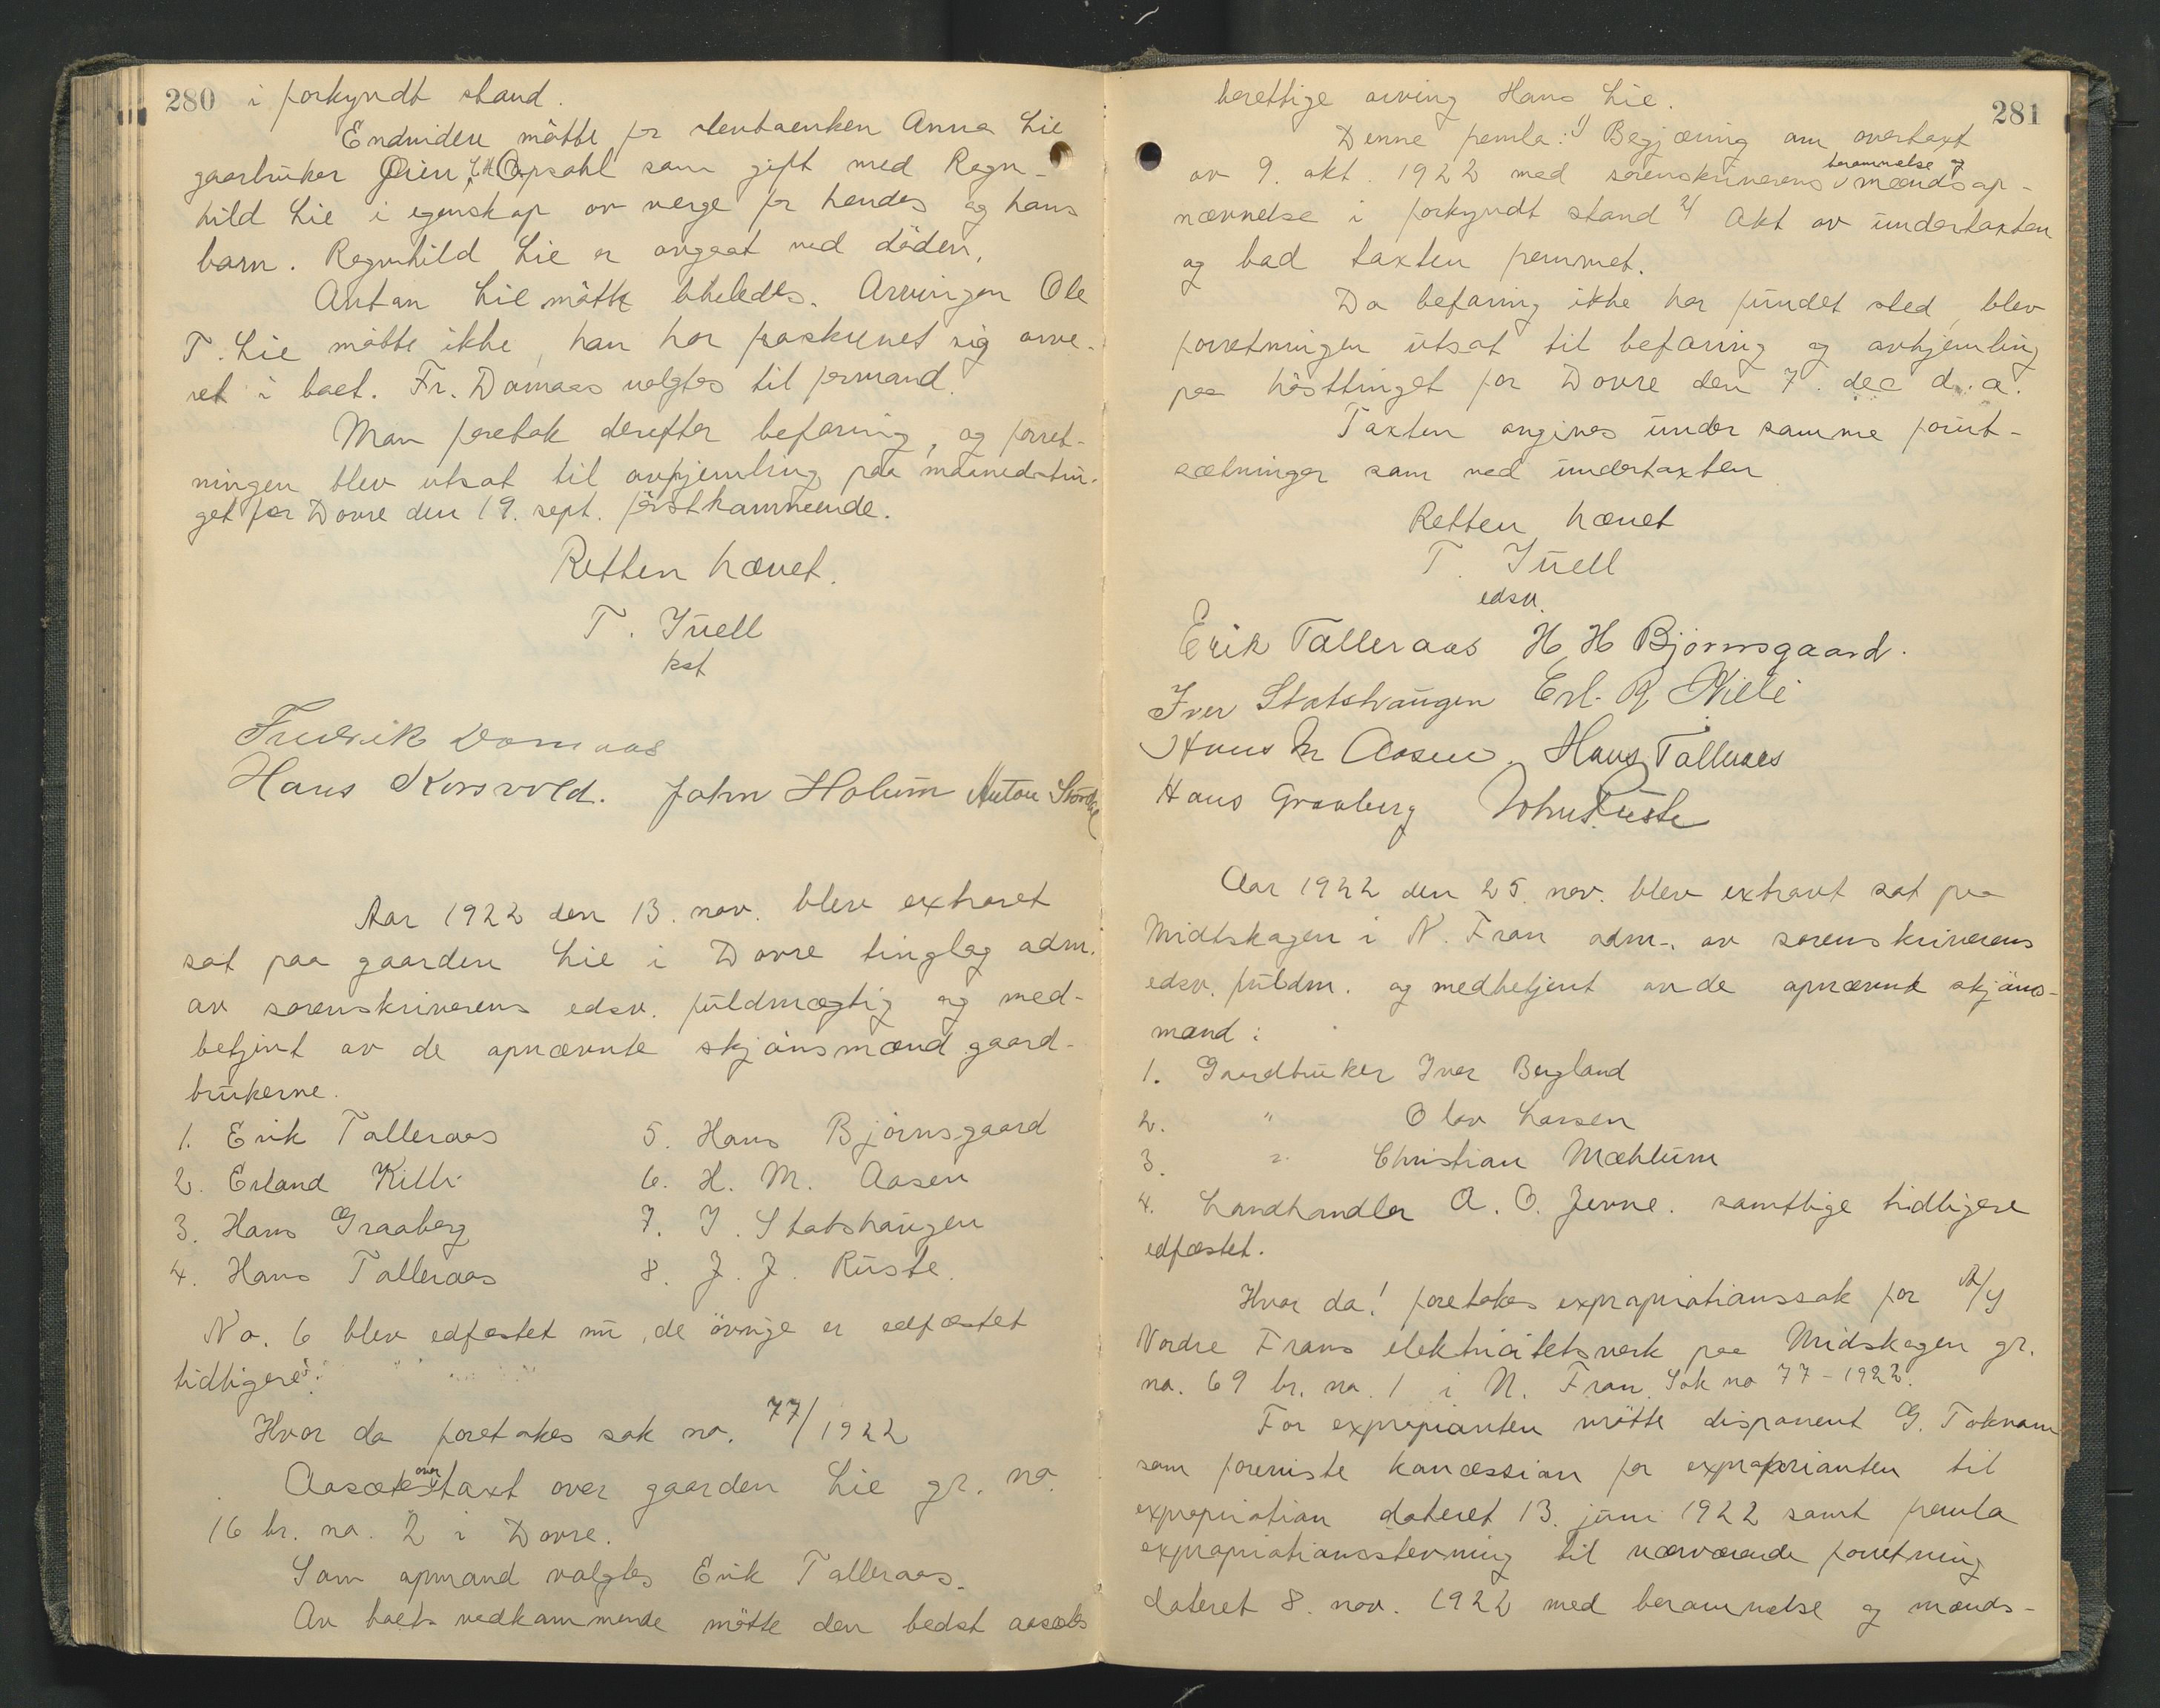 280 i forkyndt stand.
Endvidere mötte for levtaenken Anna Lie
gaarbruker Opsahl som gift med Regn-
hild Lie i egenskap av verge for hendes og hans
barn. Regnhild Lie er avgaat ved döden.
Anton Lie mötte likeledes. Arvingen Ole
T. Lie mötte ikke, han har fraskrevet sig arve-
ret i boet. Fr. Domaas valgtes til formand.
Man foretok derefter befaring, og forret-
ningen blev utsat til avhjemling paa maanedstin-
get for Dovre den 19. sept. förstkommende.
Retten hævet.
T. Juell
kst
Fredrik Domaas
Hans Korsvold. John Holum Anton
Aar 1922 den 13. nov. blev extraret
sat paa gaarden Lie i Dovre tinglag adm.
av sorenskriverens edsv. fuldmægtig og med-
betjent av de opnævnte skjönsmænd gaard-
brukerne.
1. Erik Talleraas 5. Hans Björnsgaard
2. Erland Killi 6. H. M. Aasen
3. Hans Graaberg 7. I. Statshaugen
4. Hans Talleraas 8. J. J. Ruste.
No. 6 blev edfæstet nu, de övrige er edfæstet
tidligere.
Hvor da foretokes sak no. 77/1922
Aasætesovertaxt over gaarden Lie gr. no.
16 br. no. 2 i Dovre.
Som opmand valgtes Erik Talleraas.
Av boets vedkommende mötte den bedst aasætes
281
berettige arving Hans Lie.
Denne femla: 1) Begjæring om overtaxt
av 9. okt. 1922 med sorenskriverens berammelse og mændsop-
nævnelse i forkyndt stand 2) Akt av undertaxten
og bad taxten fremmet.
Da befaring ikke har fundet sted, blev
forretningen utsat til befaring og avhjemling
paa hösttinget for Dovre den 7. dec d.a.
Taxten avgives under samme forut-
sætninger som ved undertaxten
Retten hævet
T. Juell
edsv.
Erik Talleraas H. H Björnsgaard.
Iver Statshaugen Erl. Killi
Hans M Aasen. Hans Talleraas
Hans Graaberg John Ruste
Aar 1922 den 25. nov. blev extraret sat paa
Midtskagen i N. Fron adm. av sorenskriverens
edsv. fuldm. og medbetjent av de opnævnte skjöns-
mænd:
1. Gaardbruker Iver Bergland
2. " Olav Larsen
3. " Christian Mæhlum
4. Landhandler A. O. Jevne. samtlige tidligere
edfæstet.
Hvor da! foretokes expropriationssak for A/S
Nordre Frons elektricitetsverk paa Midskagen gr.
no. 69 br. no. 1 i N. Fron. Sak no 77-1922.
For exproprianten mötte disponent G. Toknam
som foreviste koncession for exproprianten til
expropriation dateret 13. juni 1922 samt femla
expropriationsstevning til nærværende forretning
dateret 8. nov. 1922 med berammelse og mænds-